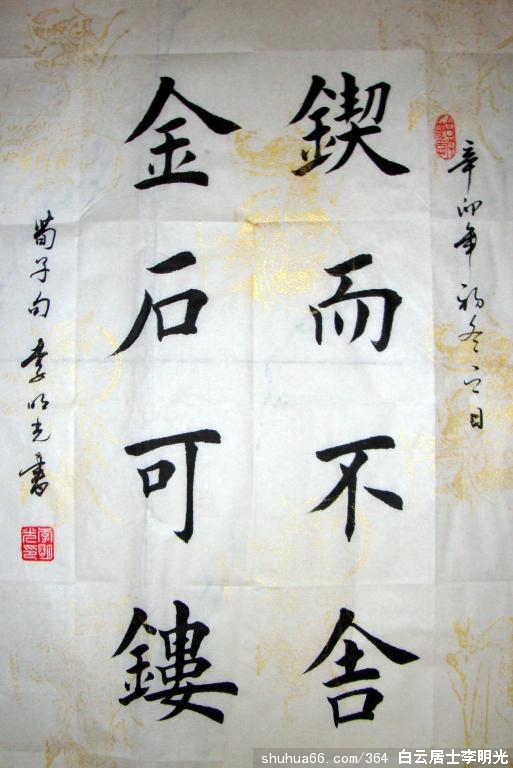 辛卯年初冬日
鍥而不舍
金石可鏤
荀子句 李明光書
李明光印
shuhua66.com/364 白云居士李明光